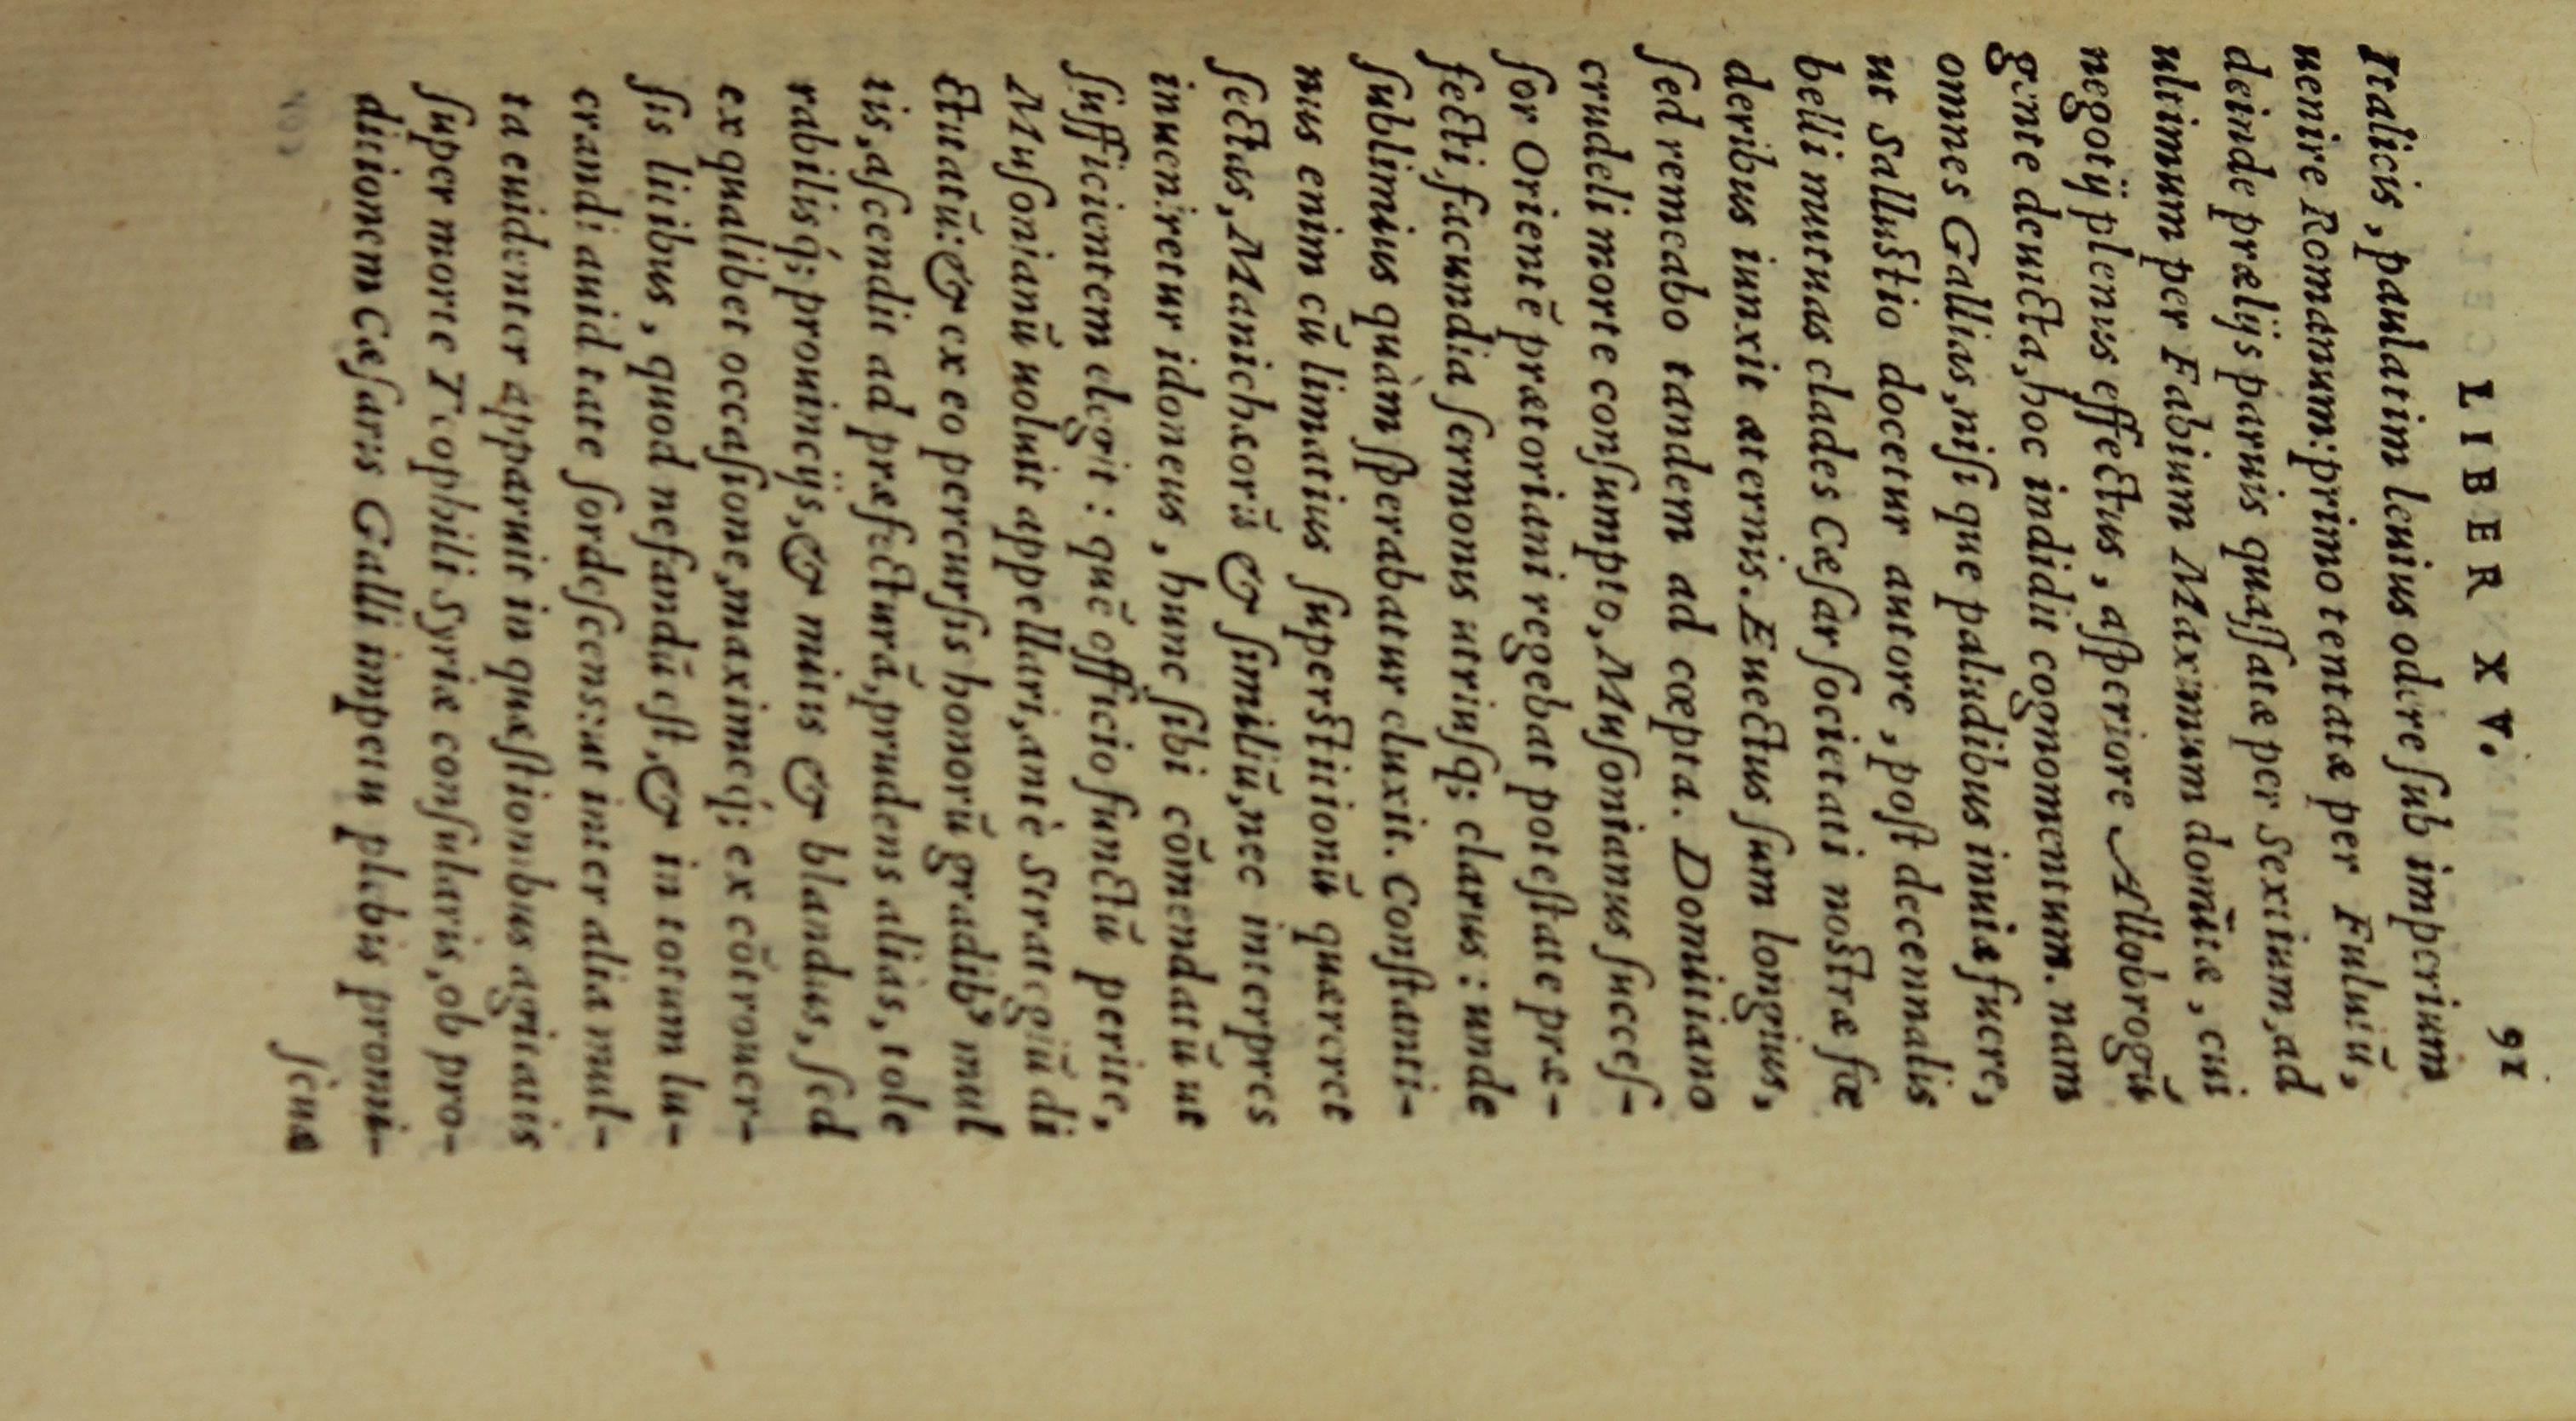 LIBER XV. 91
Italicis, paulatim leuius odere ſub imperium
uenire Romanum: primo tentatæ per Fuluiũ,
deinde prælijs paruis quaſſatæ per Sextium, ad
ultimum per Fabium Maximum domitæ, cui
negotij plenus effectus, aſperiore Allobrogũ
gente deuicta, hoc indidit cognomentum. nam
omnes Gallias, niſi que paludibus inuiæ fuere,
ut Salluſtio docetur autore, poſt decennalis
belli mutuas clades Cæſar ſocietati noſtræ fœ
deribus iunxit æternis. Euectus ſum longius,
ſed remeabo tandem ad cœpta. Domitiano
crudeli morte conſumpto, Muſonianus ſucceſ-
ſor Orientẽ prætoriani regebat poteſtate præ-
fecti, facundia ſermonis utriuſq; clarus: unde
ſublimius quàm ſperabatur eluxit. Conſtanti-
nus enim cũ limatius ſuperſtitionũ quæreret
ſectas, Manichæorũ & ſimiliũ, nec interpres
inueniretur idoneus, hunc ſibi cõmendatũ ut
ſufficientem elegit: quẽ officio functũ perite,
Muſonianũ uoluit appellari, antè Strategiũ di
ctitatũ: & ex eo percurſis honorũ gradib⁹ mul
tis, aſcendit ad præfecturã, prudens aliàs, tole
rabilisq́; prouincijs, & mitis & blandus, ſed
ex qualibet occaſione, maximeq́; ex cõtrouer-
ſis litibus, quod nefandũ eſt, & in totum lu-
crandi auiditate ſordeſcens: ut inter alia mul-
ta euidenter apparuit in quæſtionibus agitatis
ſuper morte Teophili Syriæ conſularis, ob pro-
ditionem Cæſaris Galli impetu plebis promi-
ſcuæ